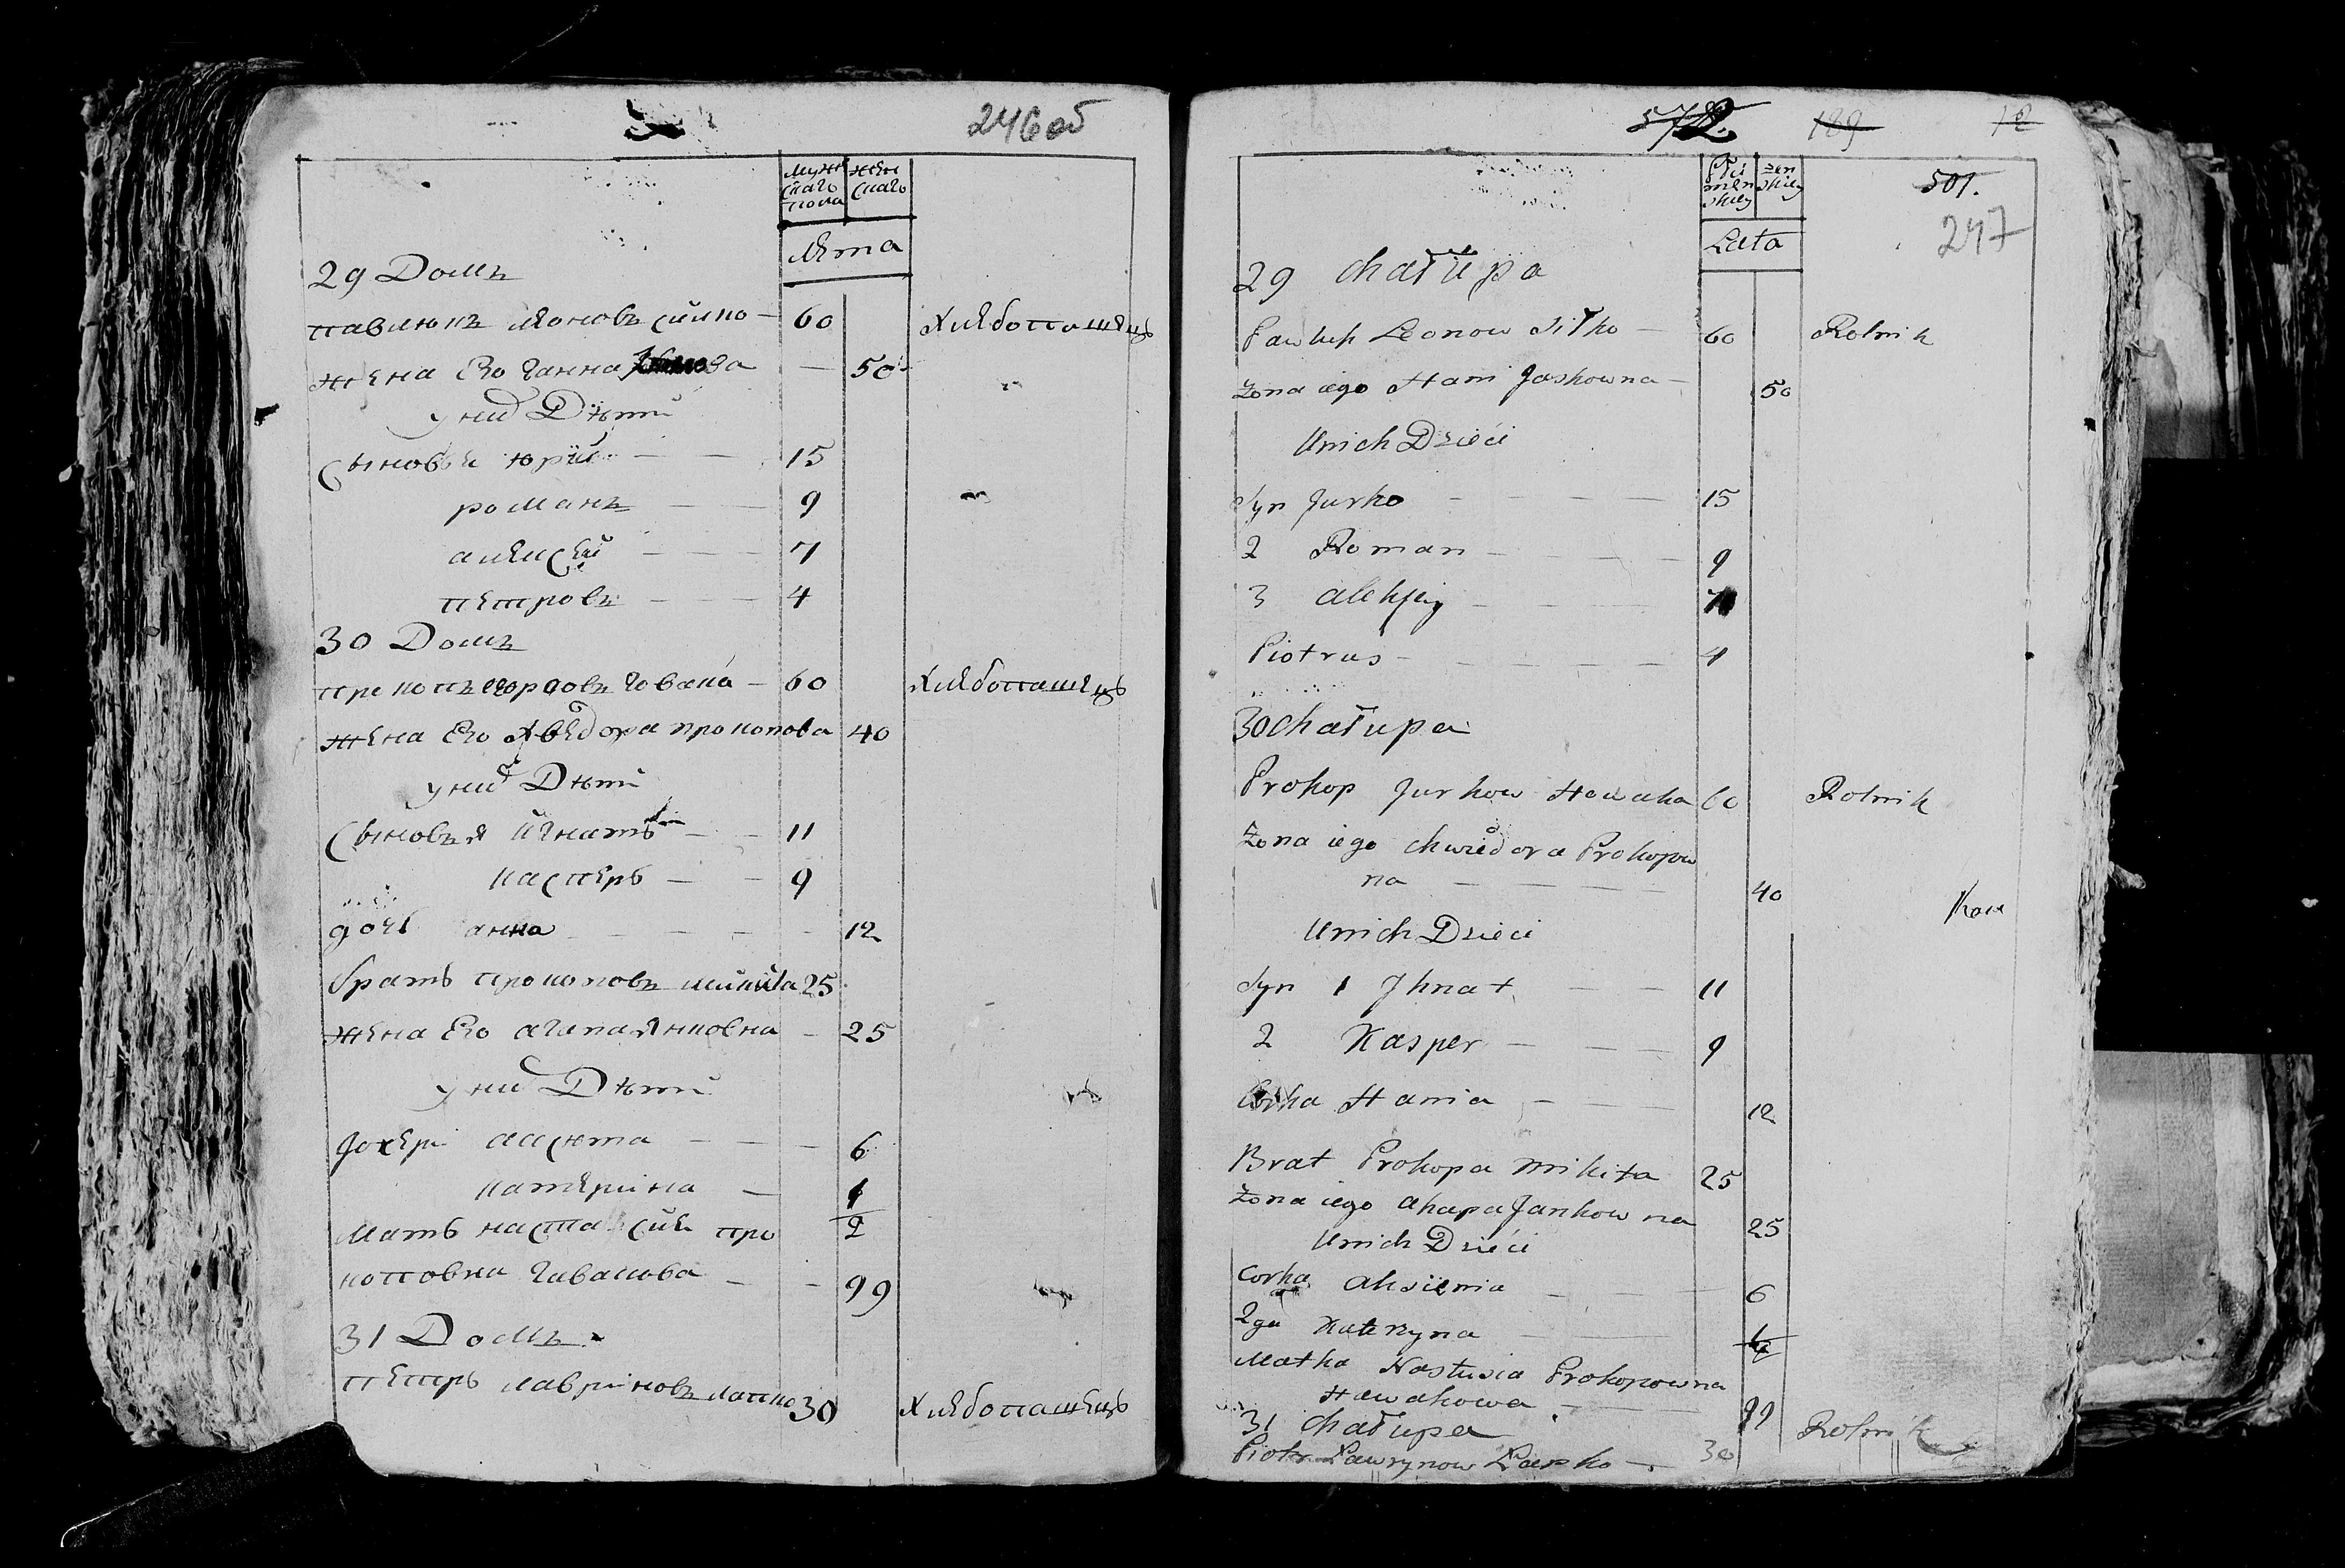 246 об
Мужскаго пола
женскаго
Лета
29 Домъ
павлюкъ леоновъ силко — 60 Хлебопашецъ
жена Его ганна — 50
у них Дѣти
Сыновья юрій — 15
романъ — 9
алексей — 7
петровъ — 4
30 Домъ
прокопъ гована — 60 Хлебопашецъ
жена Его Хведора прокопова 40
у них Дѣти
Сыновья игнатъ — 11
касперъ — 9
дочь анна — 12
братъ прокоповъ микита 25
жена Его агапа Янковна — 25
у них Дѣти
дочери аксюта — 6
катерина —
Мать настасия про
коповна гавакова — 99
31 Домъ
петръ лавриновъ лапко 30 Хлебопашецъ
572. 189 12
Płci menskiey
żenskiey
501.
247
Lata
29 Chałupa
Pawluk Leonow Siłko — 60 Rolnik
żona iego Hanna Jaskowna — 50
Unich Dzieci
Syn Jurko — 15
2 Roman — 9
3 Alexiey — 7
Piotrus — 4
30 Chałupa
Prokop Jurkow Hawaka 60 Rolnik
żona iego Chwiedora Prokopow
na — 40
Unich Dzieci
Syn 1 Ihnat — 11
2 Kasper — 9
Corka Hania — 12
Brat Prokopa Mikita 25
żona iego Ahapa Jankowna 25
Unich Dzieci
Corka Aksienia — 6
2ga Katerzyna —
Matka Nastusia Prokopowna
Hawakowa — 99
31 Chałupa
Piotr Ławrynow Łapko — 30 Rolnik